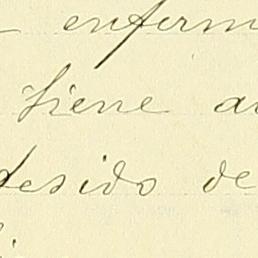 enferm
tiene a
desido de